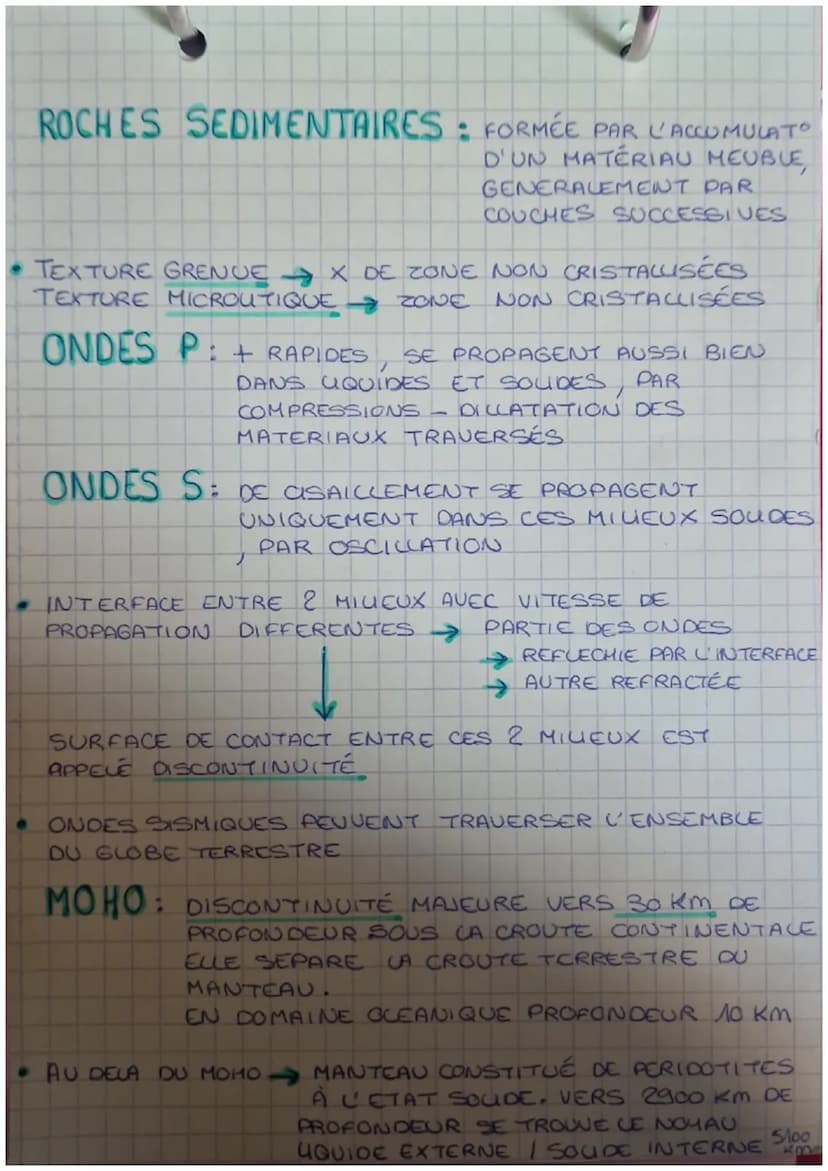 ROCHES SEDIMENTAIRES : FORMÉE PAR L'ACCUMULAT°
D'UN MATÉRIAU MEUBLE,
GENERALEMENT PAR
COUCHES SUCCESSIVES
• TEXTURE GRENUE → X DE ZONE NON CRISTALLISÉES
TEXTURE MICROLITIQUE → ZONE NON CRISTALLISÉES
ONDES P : + RAPIDES, SE PROPAGENT AUSSI BIEN
DANS LIQUIDES ET SOLIDES, PAR
COMPRESSIONS - DILLATATION DES
MATERIAUX TRAVERSÉS
ONDES S : DE CISAILLEMENT SE PROPAGENT
UNIQUEMENT DANS CES MILIEUX SOLIDES
, PAR OSCILLATION
• INTERFACE ENTRE 2 MILIEUX AVEC VITESSE DE
PROPAGATION DIFFERENTES → PARTIE DES ONDES
→ REFLECHIE PAR L'INTERFACE
→ AUTRE REFRACTÉE
↓
SURFACE DE CONTACT ENTRE CES 2 MILIEUX EST
APPELÉ DISCONTINUITÉ
• ONDES SISMIQUES PEUVENT TRAVERSER L'ENSEMBLE
DU GLOBE TERRESTRE
MOHO : DISCONTINUITÉ MAJEURE VERS 30 Km DE
PROFONDEUR SOUS LA CROUTE CONTINENTALE
ELLE SEPARE LA CROUTE TERRESTRE DU
MANTEAU.
EN DOMAINE OCEANIQUE PROFONDEUR 10 KM
• AU DELA DU MOHO → MANTEAU CONSTITUÉ DE PERIDOTITES
À L'ETAT SOLIDE. VERS 2900 KM DE
PROFONDEUR SE TROUVE LE NOYAU
LIQUIDE EXTERNE / SOLIDE INTERNE 5100 KM